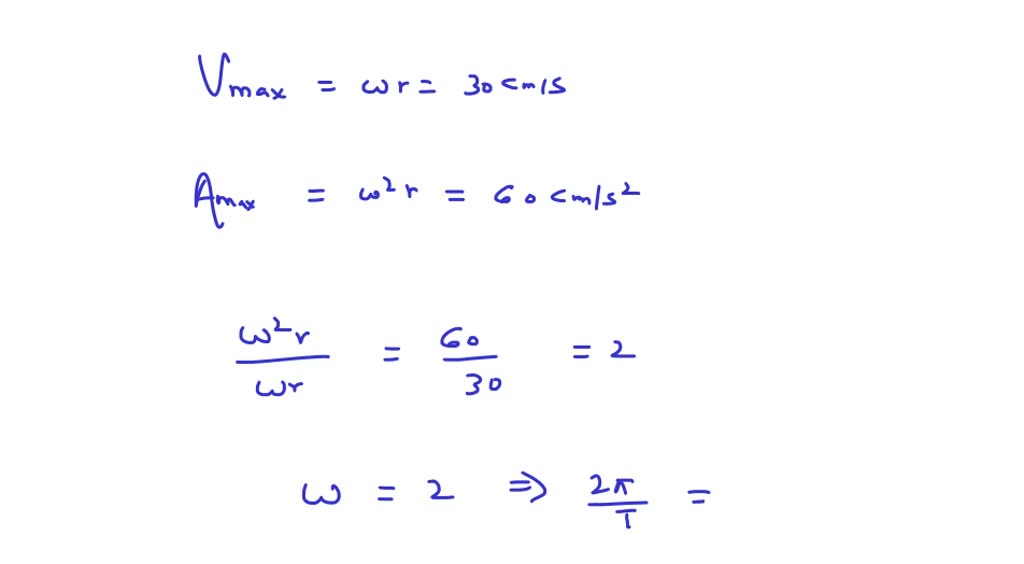 Vmax = ωr = 30 cm/s
Amax = ω²r = 60 cm/s²
ω²r/ωr = 60/30 = 2
ω = 2 ⇒ 2π/T =